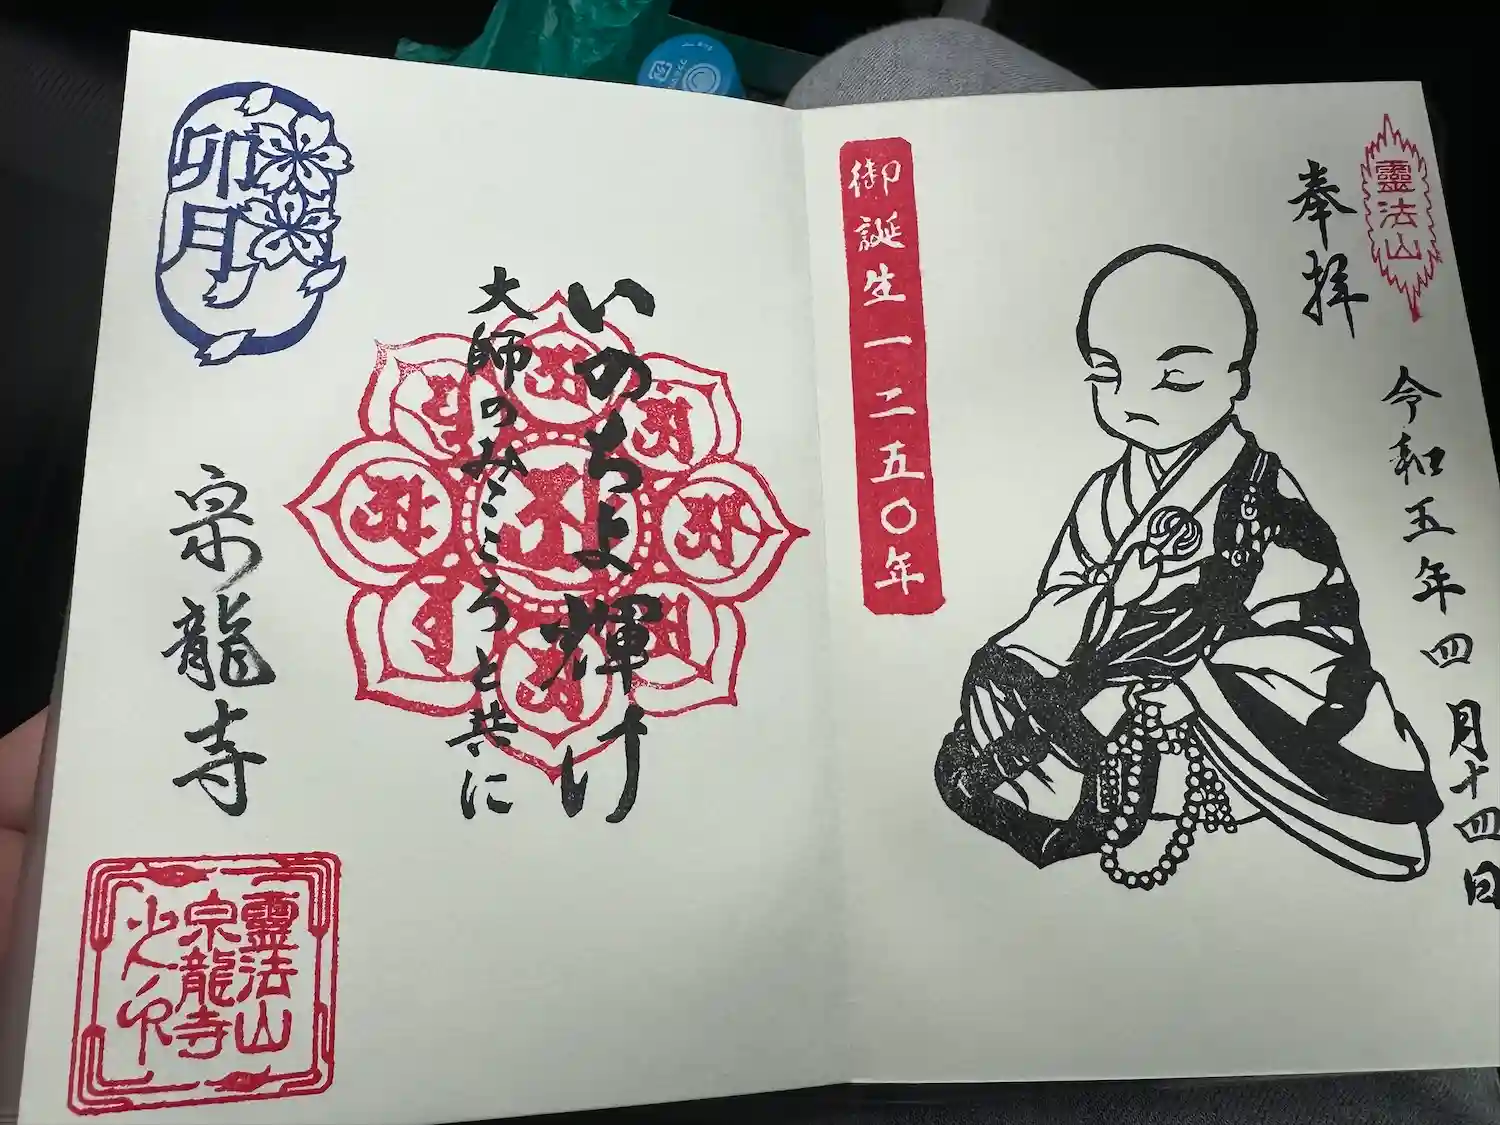 靈法山
奉拝
令和五年四月十四日
御誕生一二五〇年
いのちよ輝け
大師のみこころと共に
卯月
宗龍寺
靈法山
宗龍寺